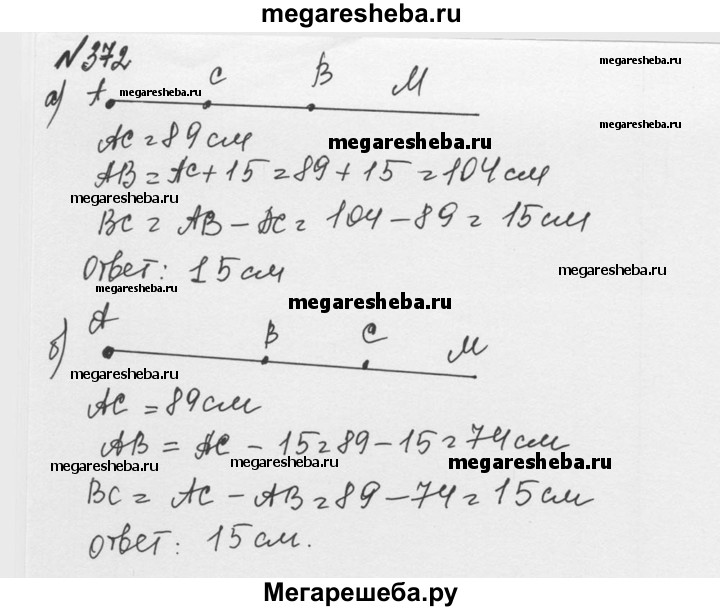 megaresheba.ru
№372
megaresheba.ru
а) A C B M
megaresheba.ru
megaresheba.ru
AC = 89 см
megaresheba.ru
AB = AC + 15 = 89 + 15 = 104 см
megaresheba.ru
BC = AB - AC = 104 - 89 = 15 см
Ответ: 15 см
megaresheba.ru
megaresheba.ru
megaresheba.ru
б) A B C M
megaresheba.ru
AC = 89 см
AB = AC - 15 = 89 - 15 = 74 см
megaresheba.ru megaresheba.ru megaresheba.ru
BC = AC - AB = 89 - 74 = 15 см
Ответ: 15 см.
Мегарешеба.ру